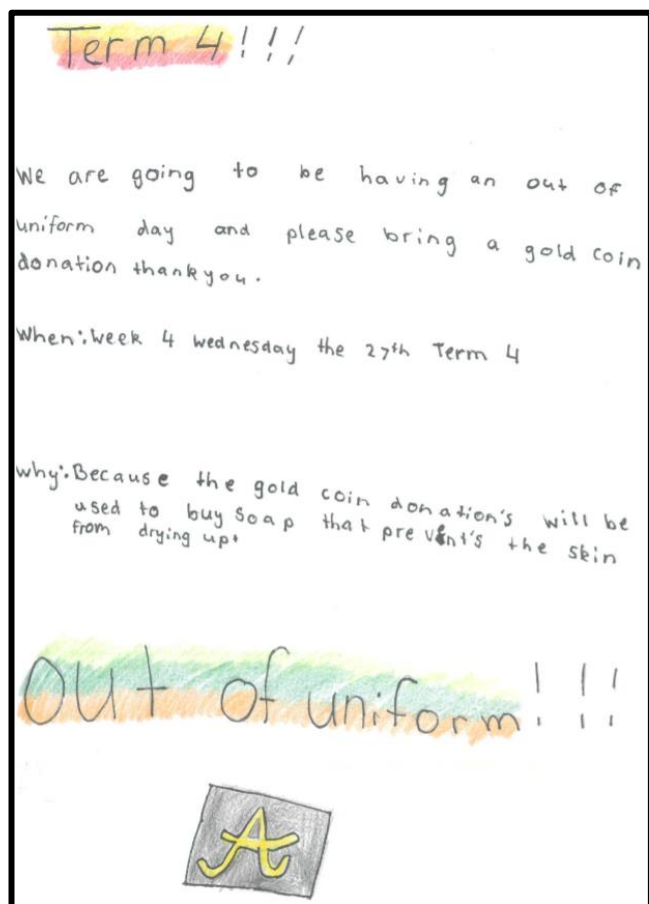 Term 4!!!
We are going to be having an out of
uniform day and please bring a gold coin
donation thankyou.
When: Week 4 wednesday the 27th Term 4
why: Because the gold coin donation's will be
used to buy soap that prevent's the skin
from drying up.
Out of uniform!!!
A